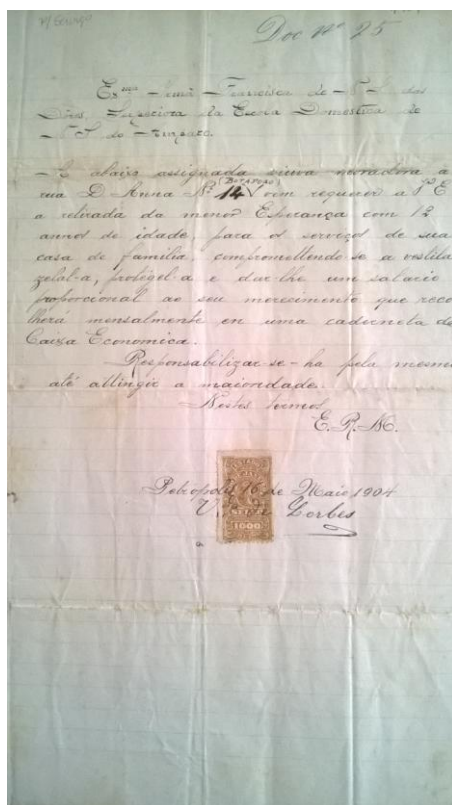 Doc Nº 25
Exma Irmã Francisca de N. S. das
Dôres, Superiora da Escola Domestica de
N. S. do Amparo.
A abaixo assignada viuva moradora á
(BOTAFOGO)
rua D. Anna Nº 14 vem requerer a V. E.
a retirada da menor Esperança com 12
annos de idade, para os serviços de sua
casa de familia, compromettendo-se a vestil-a
zelal-a, protégel-a e dar-lhe um salario
proporcional ao seu merecimento que reco
lherá mensalmente en uma caderneta da
Caixa Economica.
Responsabilizar-se-ha pela mesma
até attingir a maioridade.
Nestes termos
E. R. M.
Petropolis 16 de Maio 1904
V. Lorbes
1000